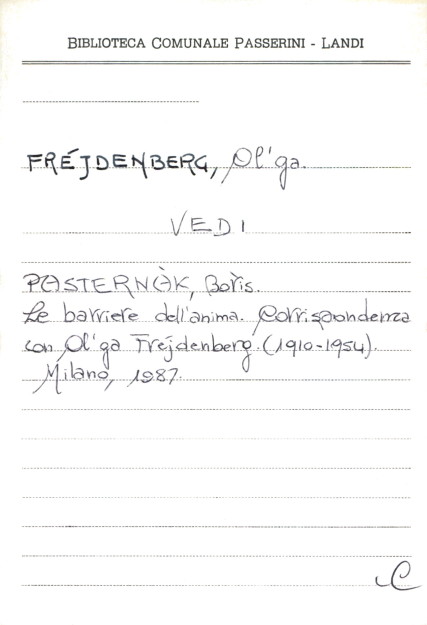 BIBLIOTECA COMUNALE PASSERINI - LANDI
FRÉJDENBERG, Ol'ga.
VEDI
PASTERNÀK, Borìs.
Le barriere dell'anima. Corrispondenza
con Ol'ga Frejdenberg. (1910-1954).
Milano, 1987.
C